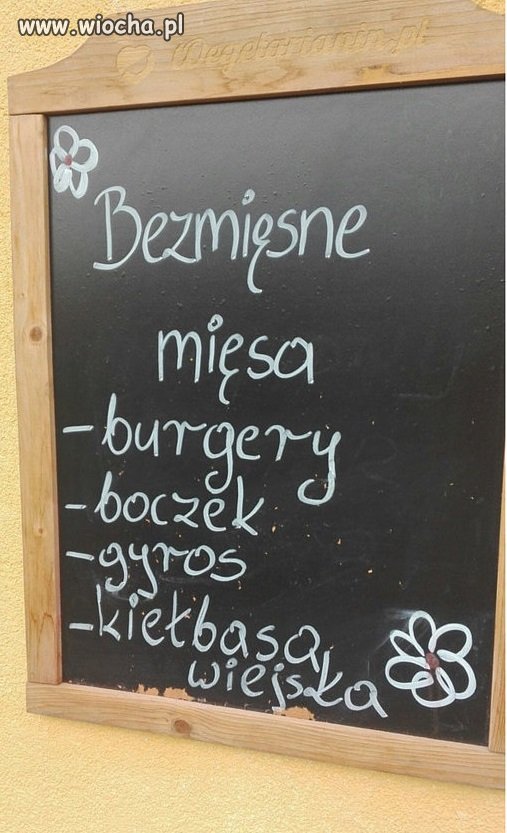 www.wiocha.pl
Wegetarianin.pl
Bezmięsne
mięsa
-burgery
-boczek
-gyros
-kiełbasa
wiejska